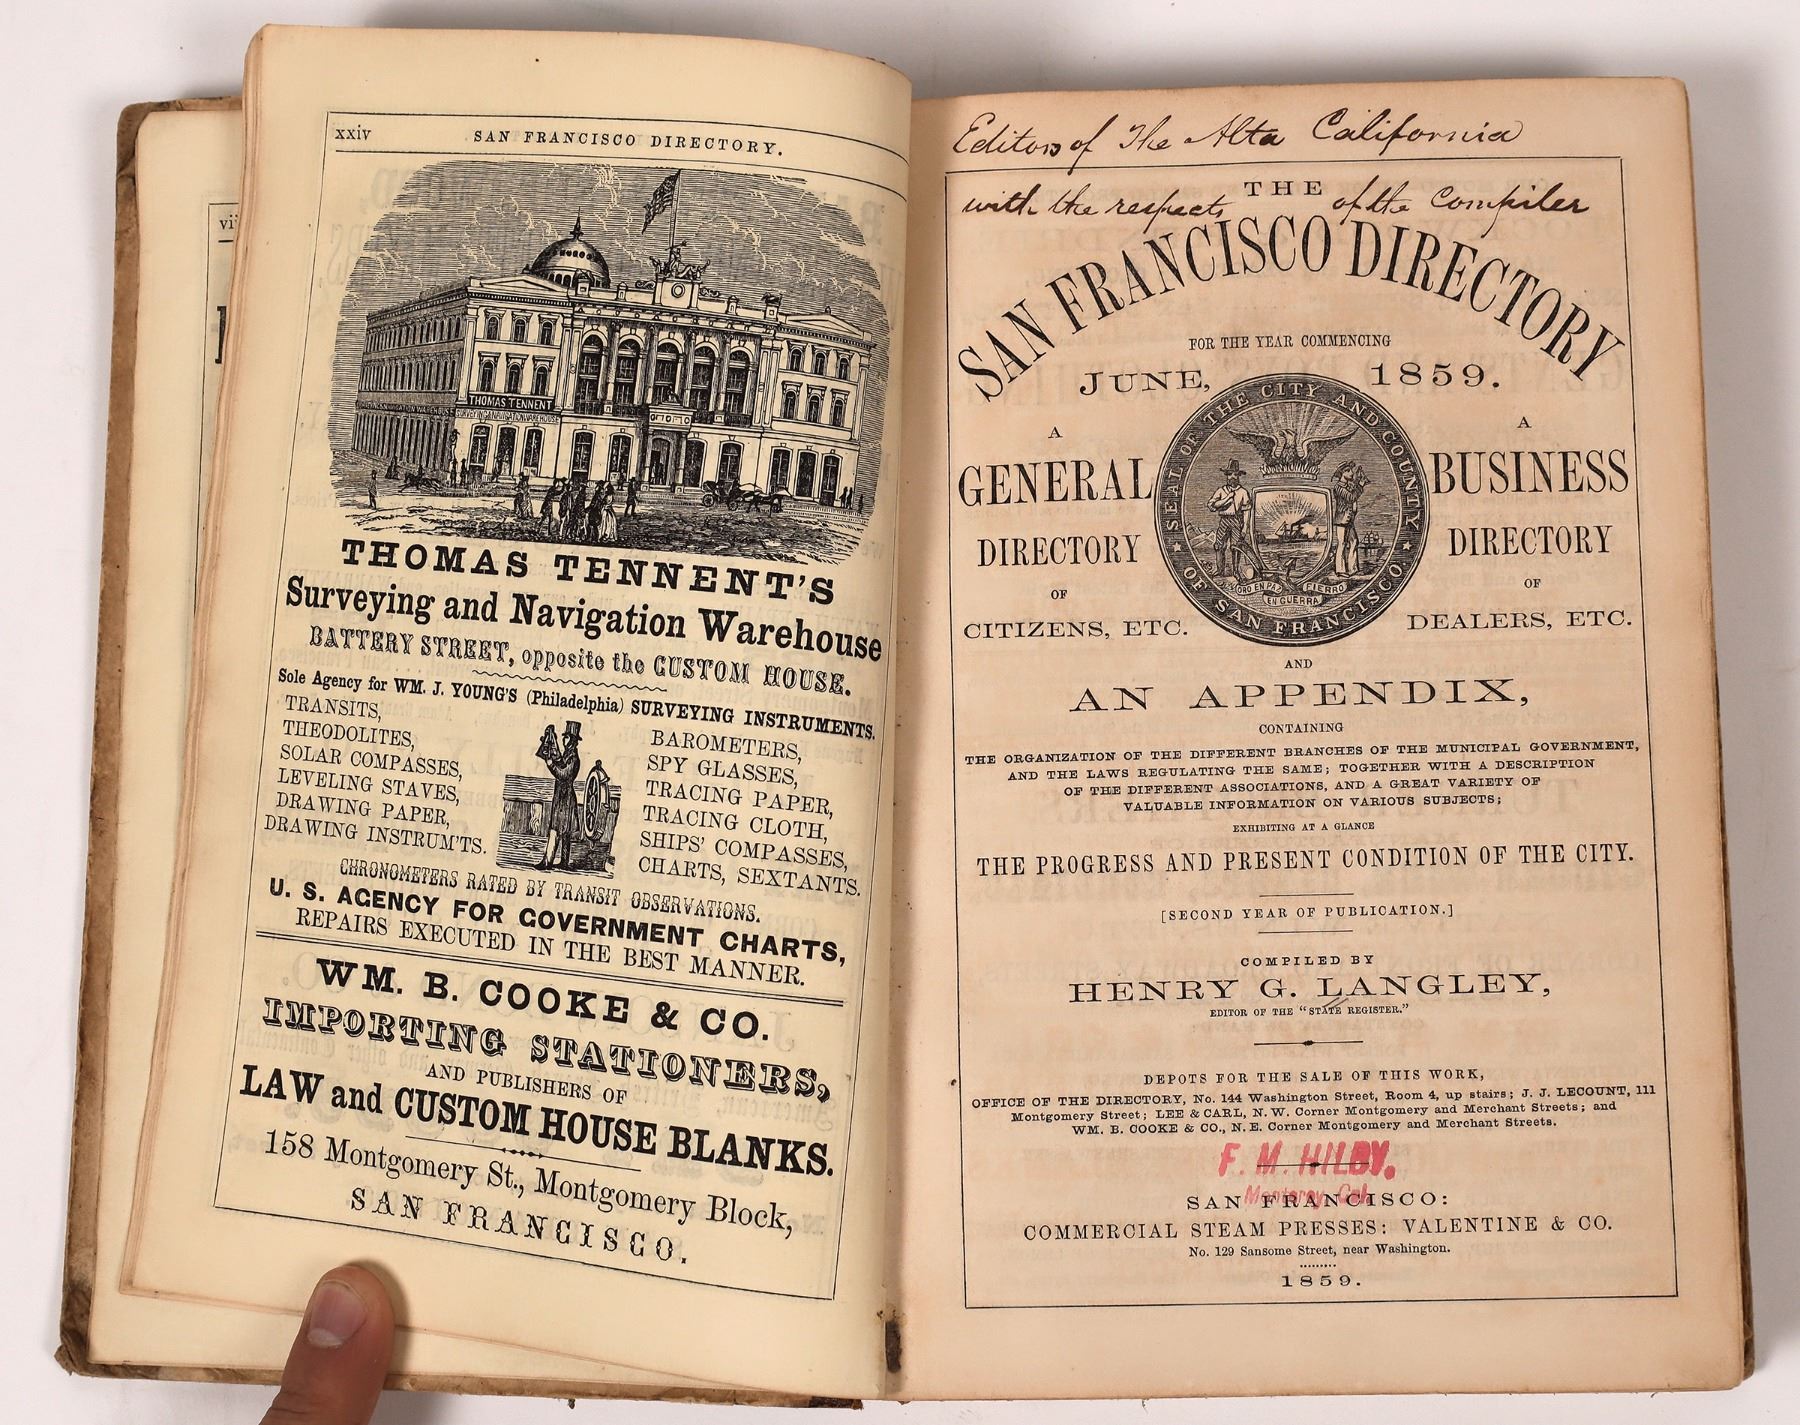 xxiv SAN FRANCISCO DIRECTORY.
THOMAS TENNENT
THOMAS TENNENT'S
Surveying and Navigation Warehouse
BATTERY STREET, opposite the CUSTOM HOUSE.
Sole Agency for WM. J. YOUNG'S (Philadelphia) SURVEYING INSTRUMENTS.
TRANSITS,
THEODOLITES,
SOLAR COMPASSES,
LEVELING STAVES,
DRAWING PAPER,
DRAWING INSTRUM'TS.
BAROMETERS,
SPY GLASSES,
TRACING PAPER,
TRACING CLOTH,
SHIPS' COMPASSES,
CHARTS, SEXTANTS.
CHRONOMETERS RATED BY TRANSIT OBSERVATIONS.
U. S. AGENCY FOR GOVERNMENT CHARTS,
REPAIRS EXECUTED IN THE BEST MANNER.
WM. B. COOKE & CO.
IMPORTING STATIONERS,
AND PUBLISHERS OF
LAW and CUSTOM HOUSE BLANKS.
158 Montgomery St., Montgomery Block,
SAN FRANCISCO.
Editors of The Alta California
with the respects of the Compiler
THE
SAN FRANCISCO DIRECTORY
FOR THE YEAR COMMENCING
JUNE, 1859.
SEAL OF THE CITY AND COUNTY OF SAN FRANCISCO
ORO EN PAZ FIERRO
EN GUERRA
A
GENERAL
DIRECTORY
OF
CITIZENS, ETC.
A
BUSINESS
DIRECTORY
OF
DEALERS, ETC.
AND
AN APPENDIX,
CONTAINING
THE ORGANIZATION OF THE DIFFERENT BRANCHES OF THE MUNICIPAL GOVERNMENT,
AND THE LAWS REGULATING THE SAME; TOGETHER WITH A DESCRIPTION
OF THE DIFFERENT ASSOCIATIONS, AND A GREAT VARIETY OF
VALUABLE INFORMATION ON VARIOUS SUBJECTS;
EXHIBITING AT A GLANCE
THE PROGRESS AND PRESENT CONDITION OF THE CITY.
[SECOND YEAR OF PUBLICATION.]
COMPILED BY
HENRY G. LANGLEY,
EDITOR OF THE "STATE REGISTER."
DEPOTS FOR THE SALE OF THIS WORK,
OFFICE OF THE DIRECTORY, No. 144 Washington Street, Room 4, up stairs; J. J. LECOUNT, 111
Montgomery Street; LEE & CARL, N. W. Corner Montgomery and Merchant Streets; and
WM. B. COOKE & CO., N. E. Corner Montgomery and Merchant Streets.
F. M. HILBY.
Monterey, Cal.
SAN FRANCISCO:
COMMERCIAL STEAM PRESSES: VALENTINE & CO.
No. 129 Sansome Street, near Washington.
1859.